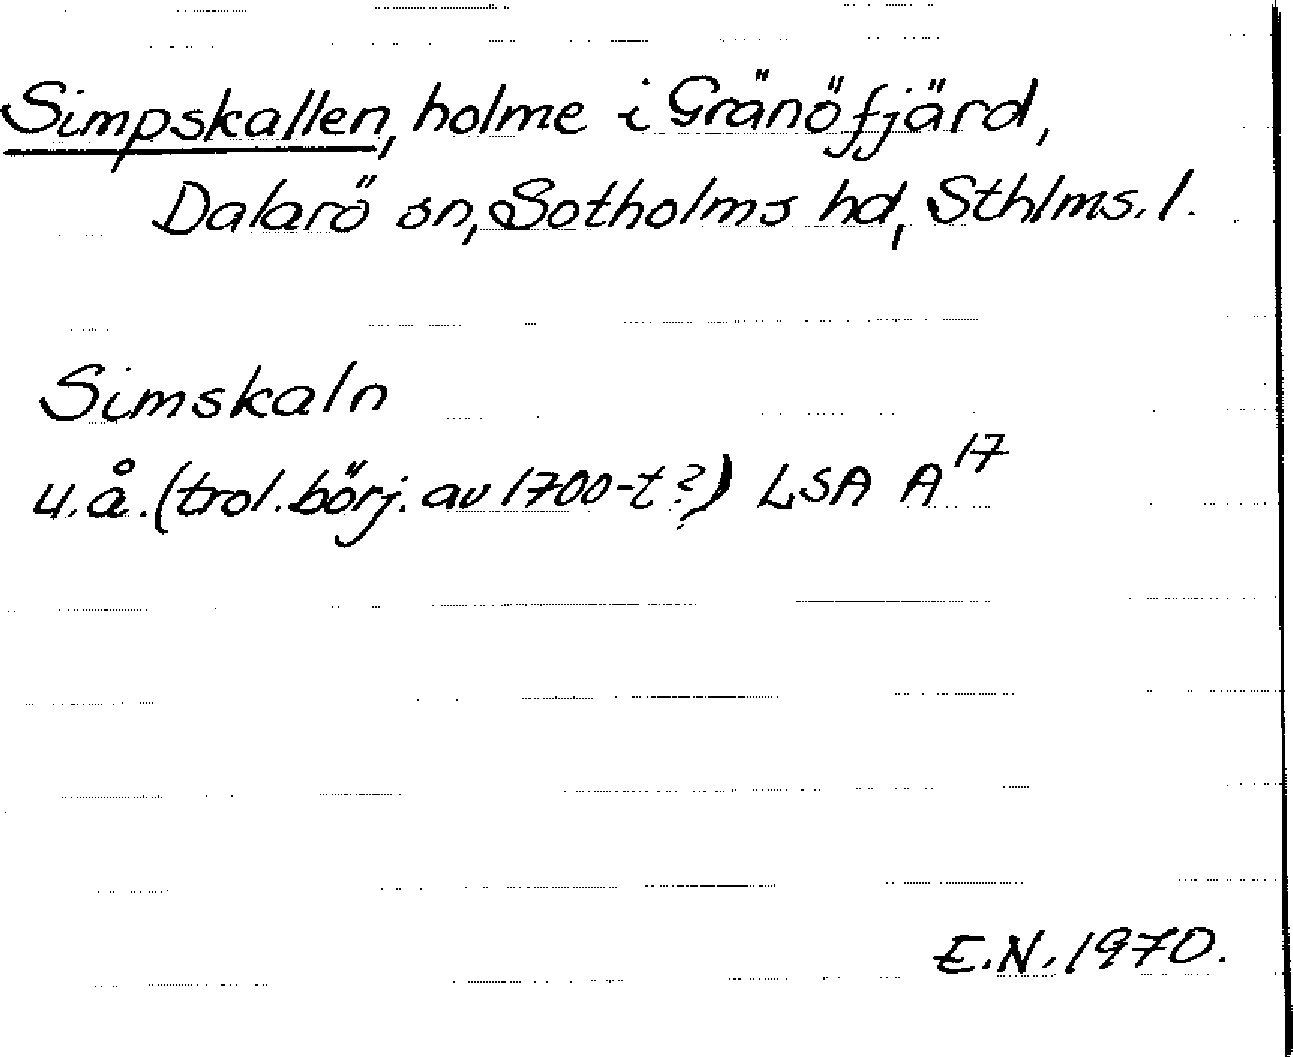 Simpskallen, holme i Gränöfjärd,
Dalarö sn, Sotholms hd, Sthlms. l.
Simskaln
u.å. (trol. börj. av 1700-t?) LSA A 17
E.N. 1970.